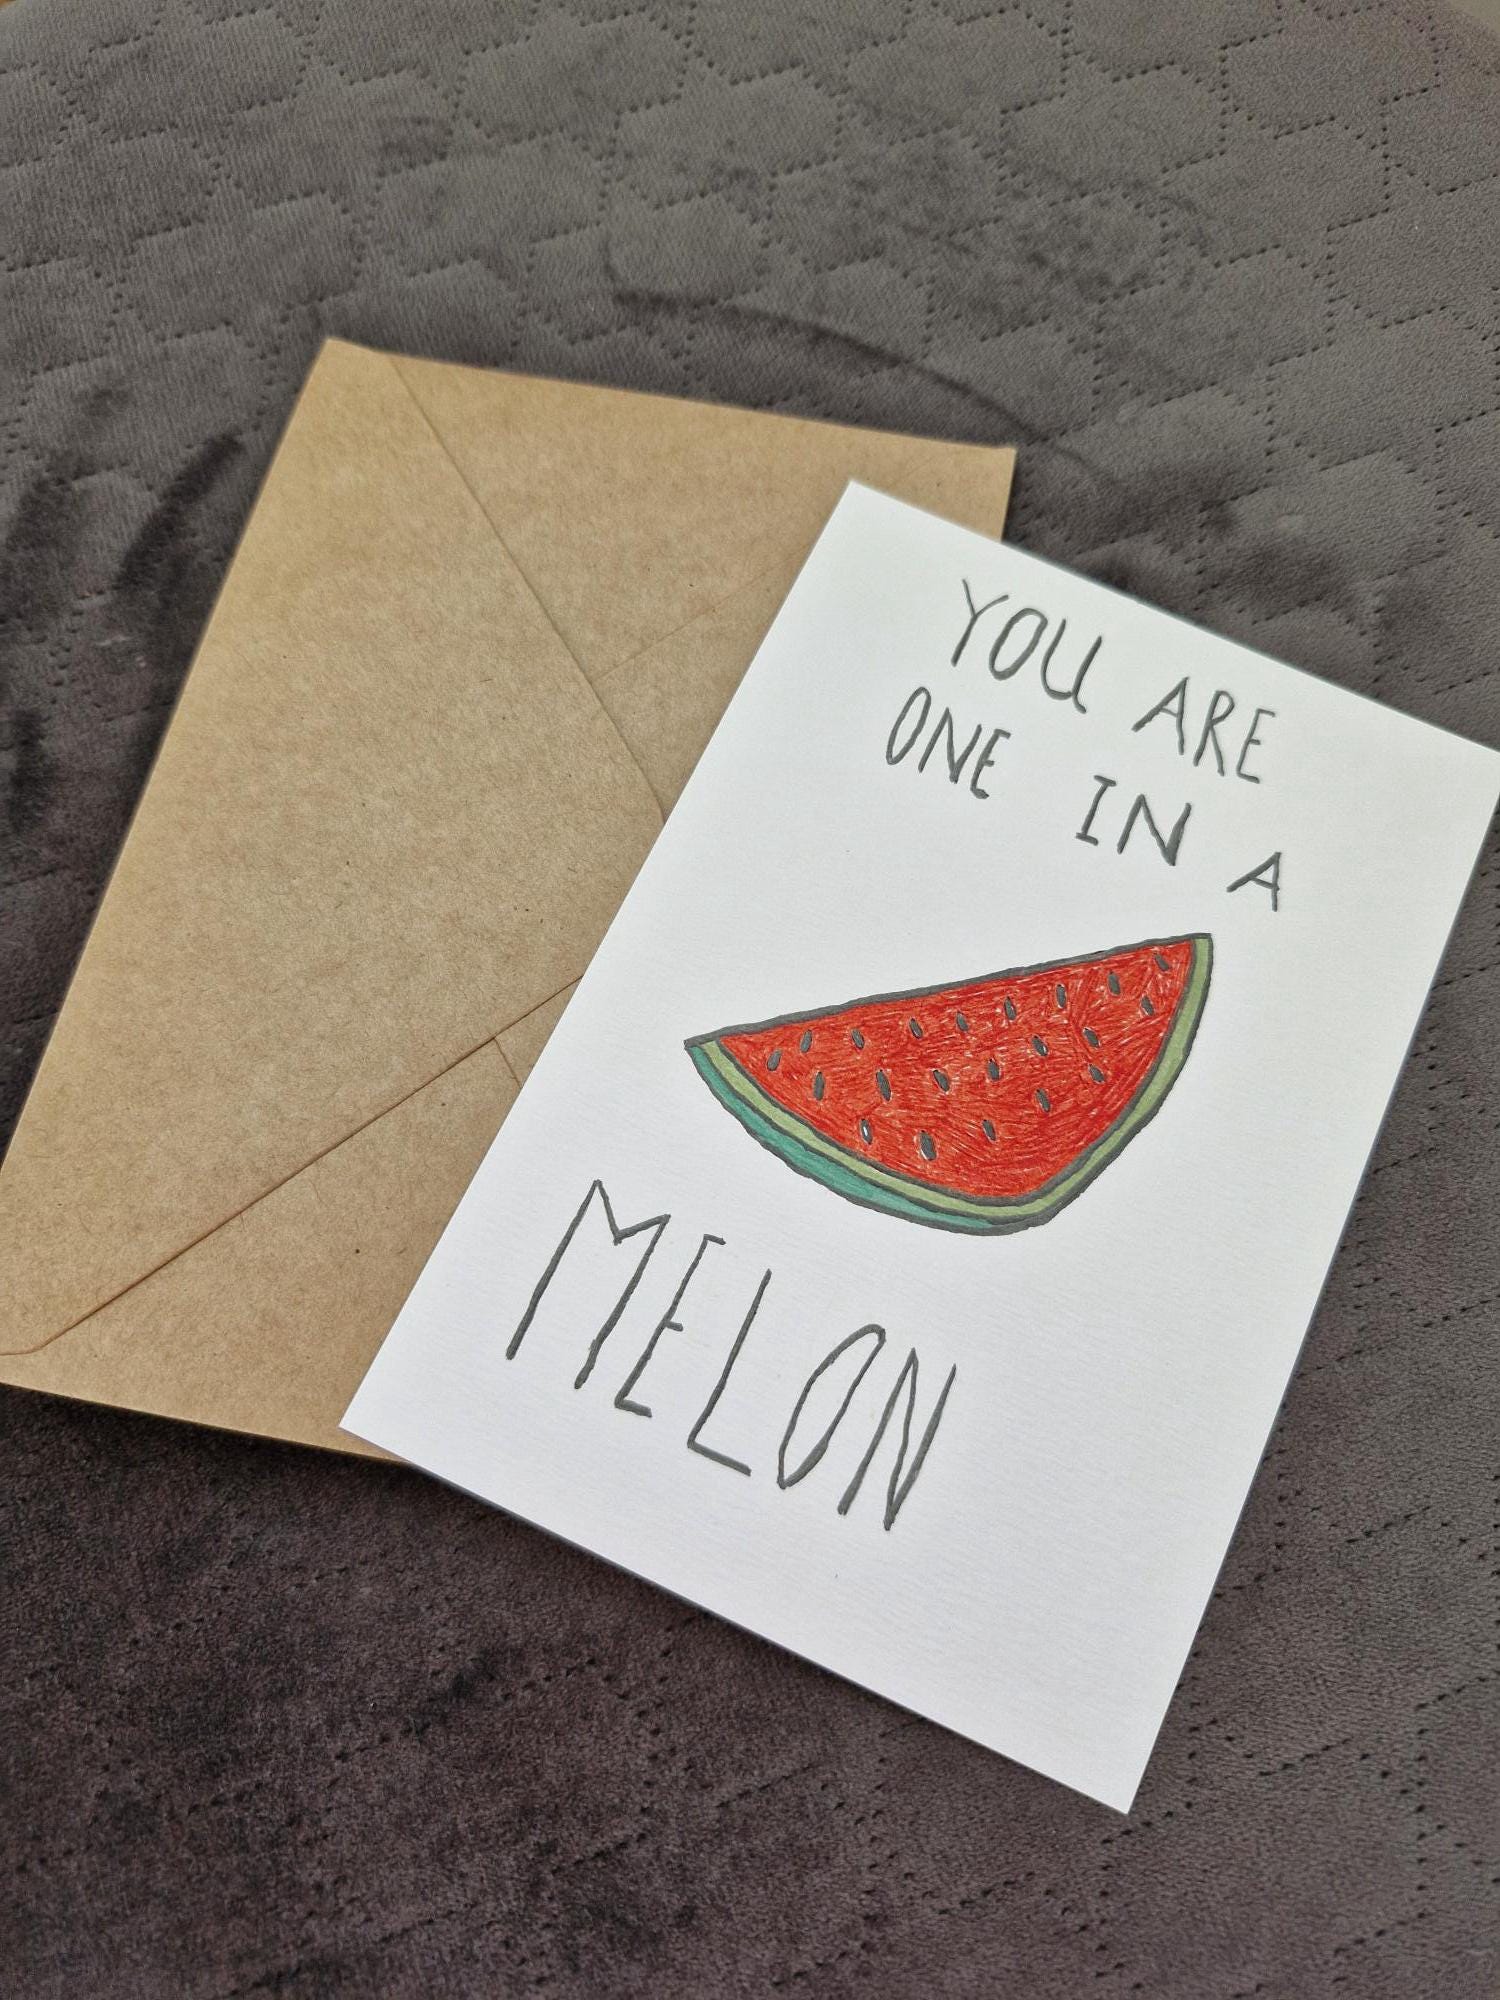 YOU ARE
ONE IN A
MELON